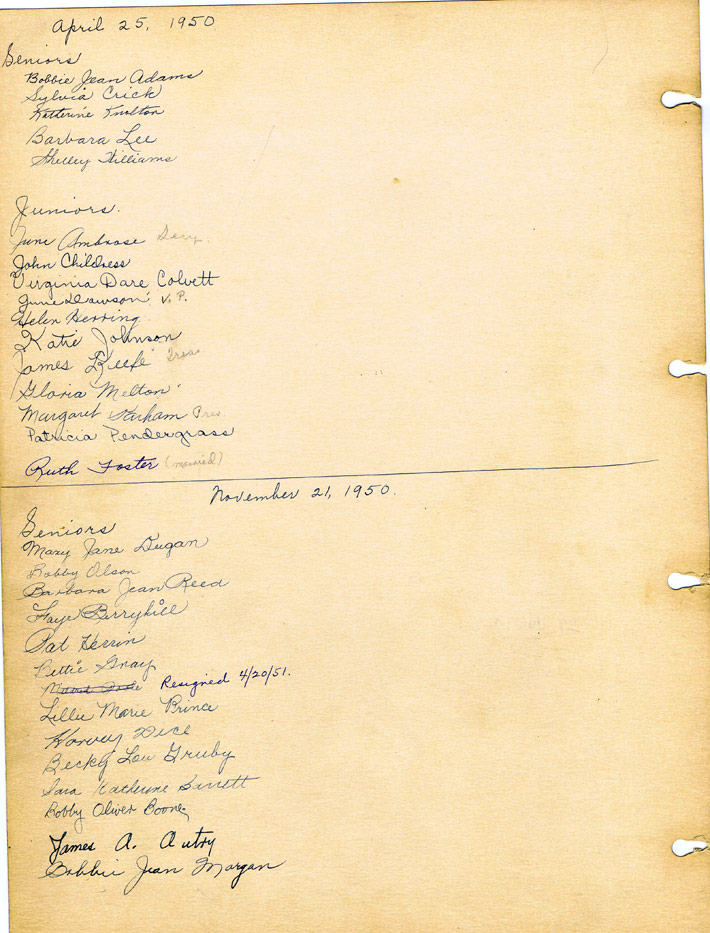 April 25, 1950
Seniors
Bobbie Jean Adams
Sylvia Crick
Katherine Knolton
Barbara Lee
Shelley Williams
Juniors.
June Ambrose Secy.
John Childress
Virginia Dare Colvett
June Dawson V. P.
Helen Herring
Katie Johnson
James Keefe Treas
Gloria Melton
Margaret Parham Pres.
Patricia Pendergrass
Ruth Foster (married)
November 21, 1950.
Seniors
Mary Jane Dugan
Bobby Olson
Barbara Jean Reed
Faye Berryhill
Pat Herrin
Bettie Gray
Resigned 4/20/51.
Lillie Marie Prince
Harvey Dice
Becky Lou Gruby
Sara Katherine Barrett
Bobby Oliver Boone
James A. Autry
Bobbie Jean Morgan